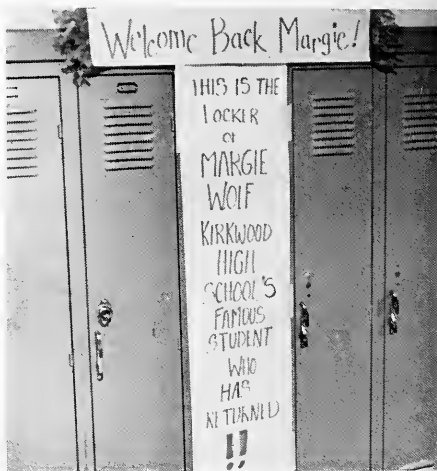 Welcome Back Margie!
THIS IS THE
LOCKER
OF
MARGIE
WOLF
KIRKWOOD
HIGH
SCHOOL'S
FAMOUS
STUDENT
WHO
HAS
RETURNED
!!